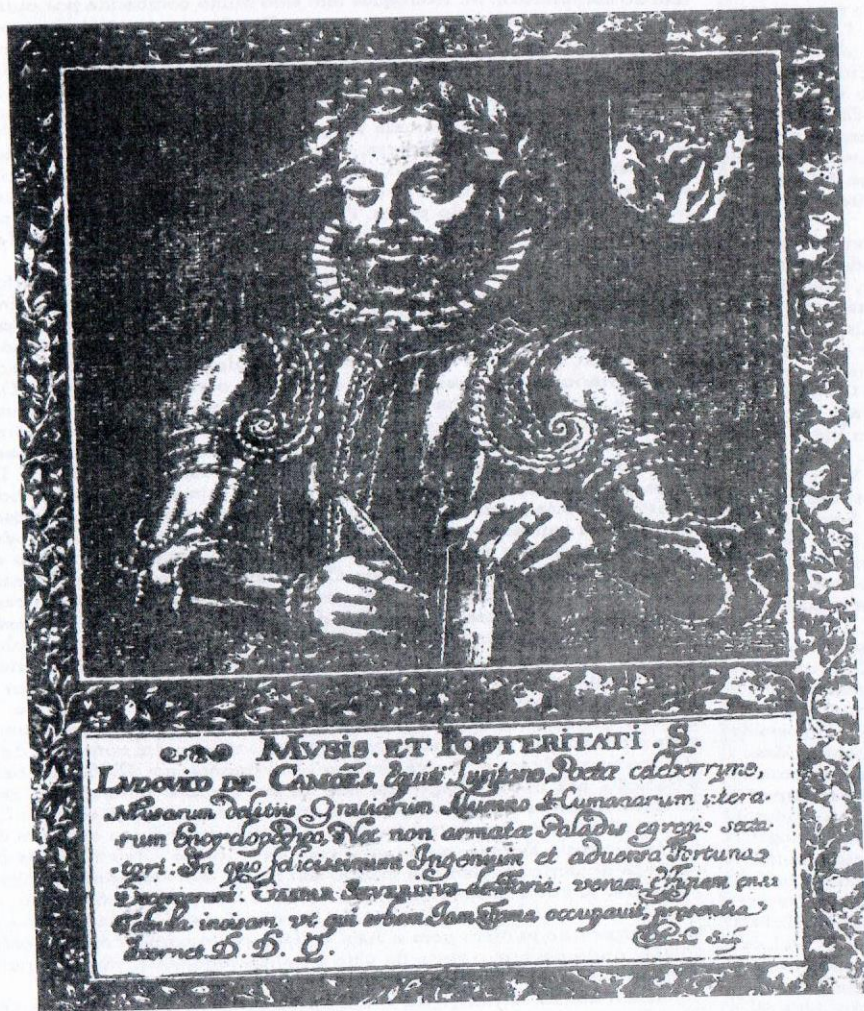 MVSIS. ET POSTERITATI. S.
LVDOVICO DE CAMOẼS, Equiti Lusitano, Poetæ celeberrymo,
Musarum delitiis Gratiarum Alumno & Humanarum litera-
rum Encyclopædico, Nec non armatæ Paladis egregio secta-
tori: In quo felicissimum Ingenium et aduersa Fortuna
GASPAR SEVERINVS de Faria veram Effigiem
tabula incisam, vt qui orbem Iam Fama occupauit, præsentia
D. D. Q.